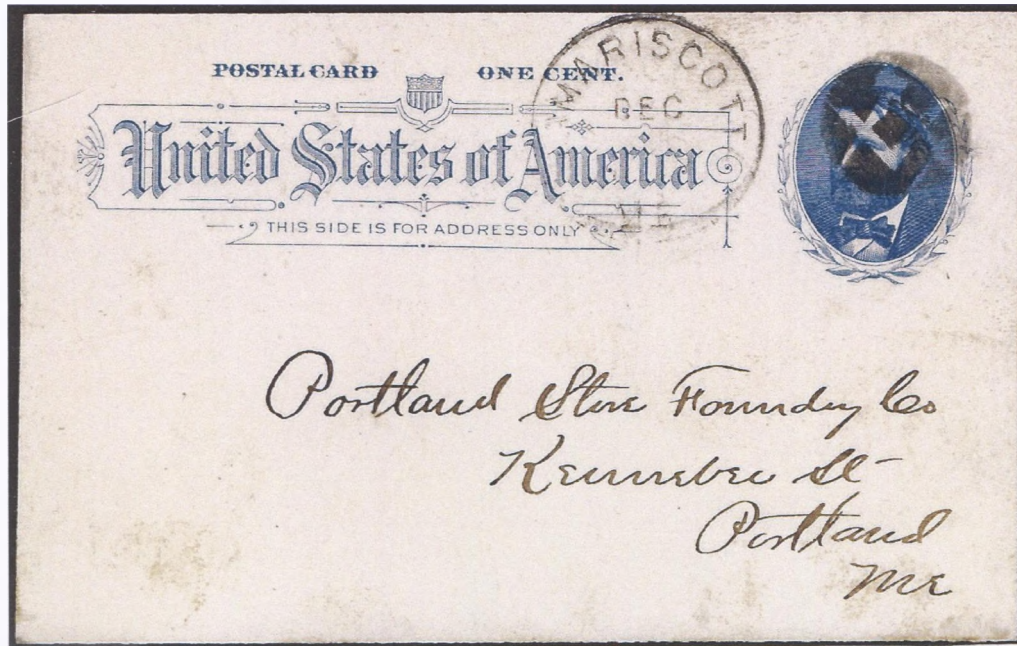 POSTAL CARD ONE CENT.
United States of America
THIS SIDE IS FOR ADDRESS ONLY
MARISCOTT
DEC
ME
Portland Stove Foundry Co
Kennebec St
Portland
Me